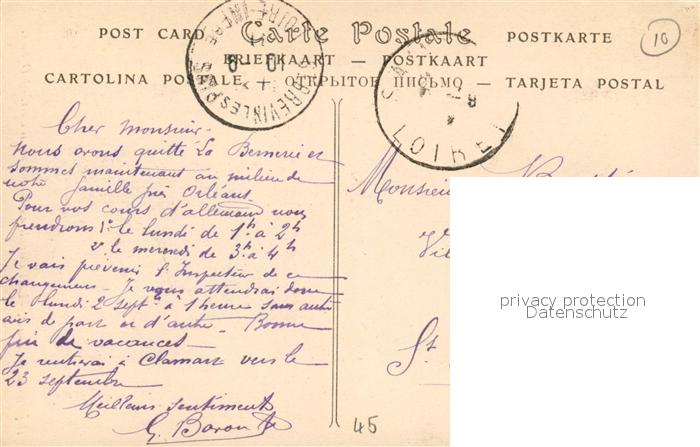 POST CARD Carte Postale POSTKARTE
BRIEFKAART — POSTKAART
CARTOLINA POSTALE — ОТКРЫТОЕ ПИСЬМО — TARJETA POSTAL
10
LOIRET
Cher Monsieur.
Nous avons quitté La Bernerie et
sommes maintenant au milieu de
notre famille près Orléans.
Pour vos cours d'allemand nous
prendrons 1º le lundi de 1h à 2h
2º le mercredi de 3h à 4h
Je vais prévenir l'Inspecteur de ce
changement. Je vous attendrai donc
le lundi 2 sept. à 1 heure sans autre
avis de part et d'autre. Bonne
fin de vacances —
Je rentrerai à Clamart vers le
23 septembre
Meilleurs sentiments
G. Baron
Monsieur
St
privacy protection
Datenschutz
45